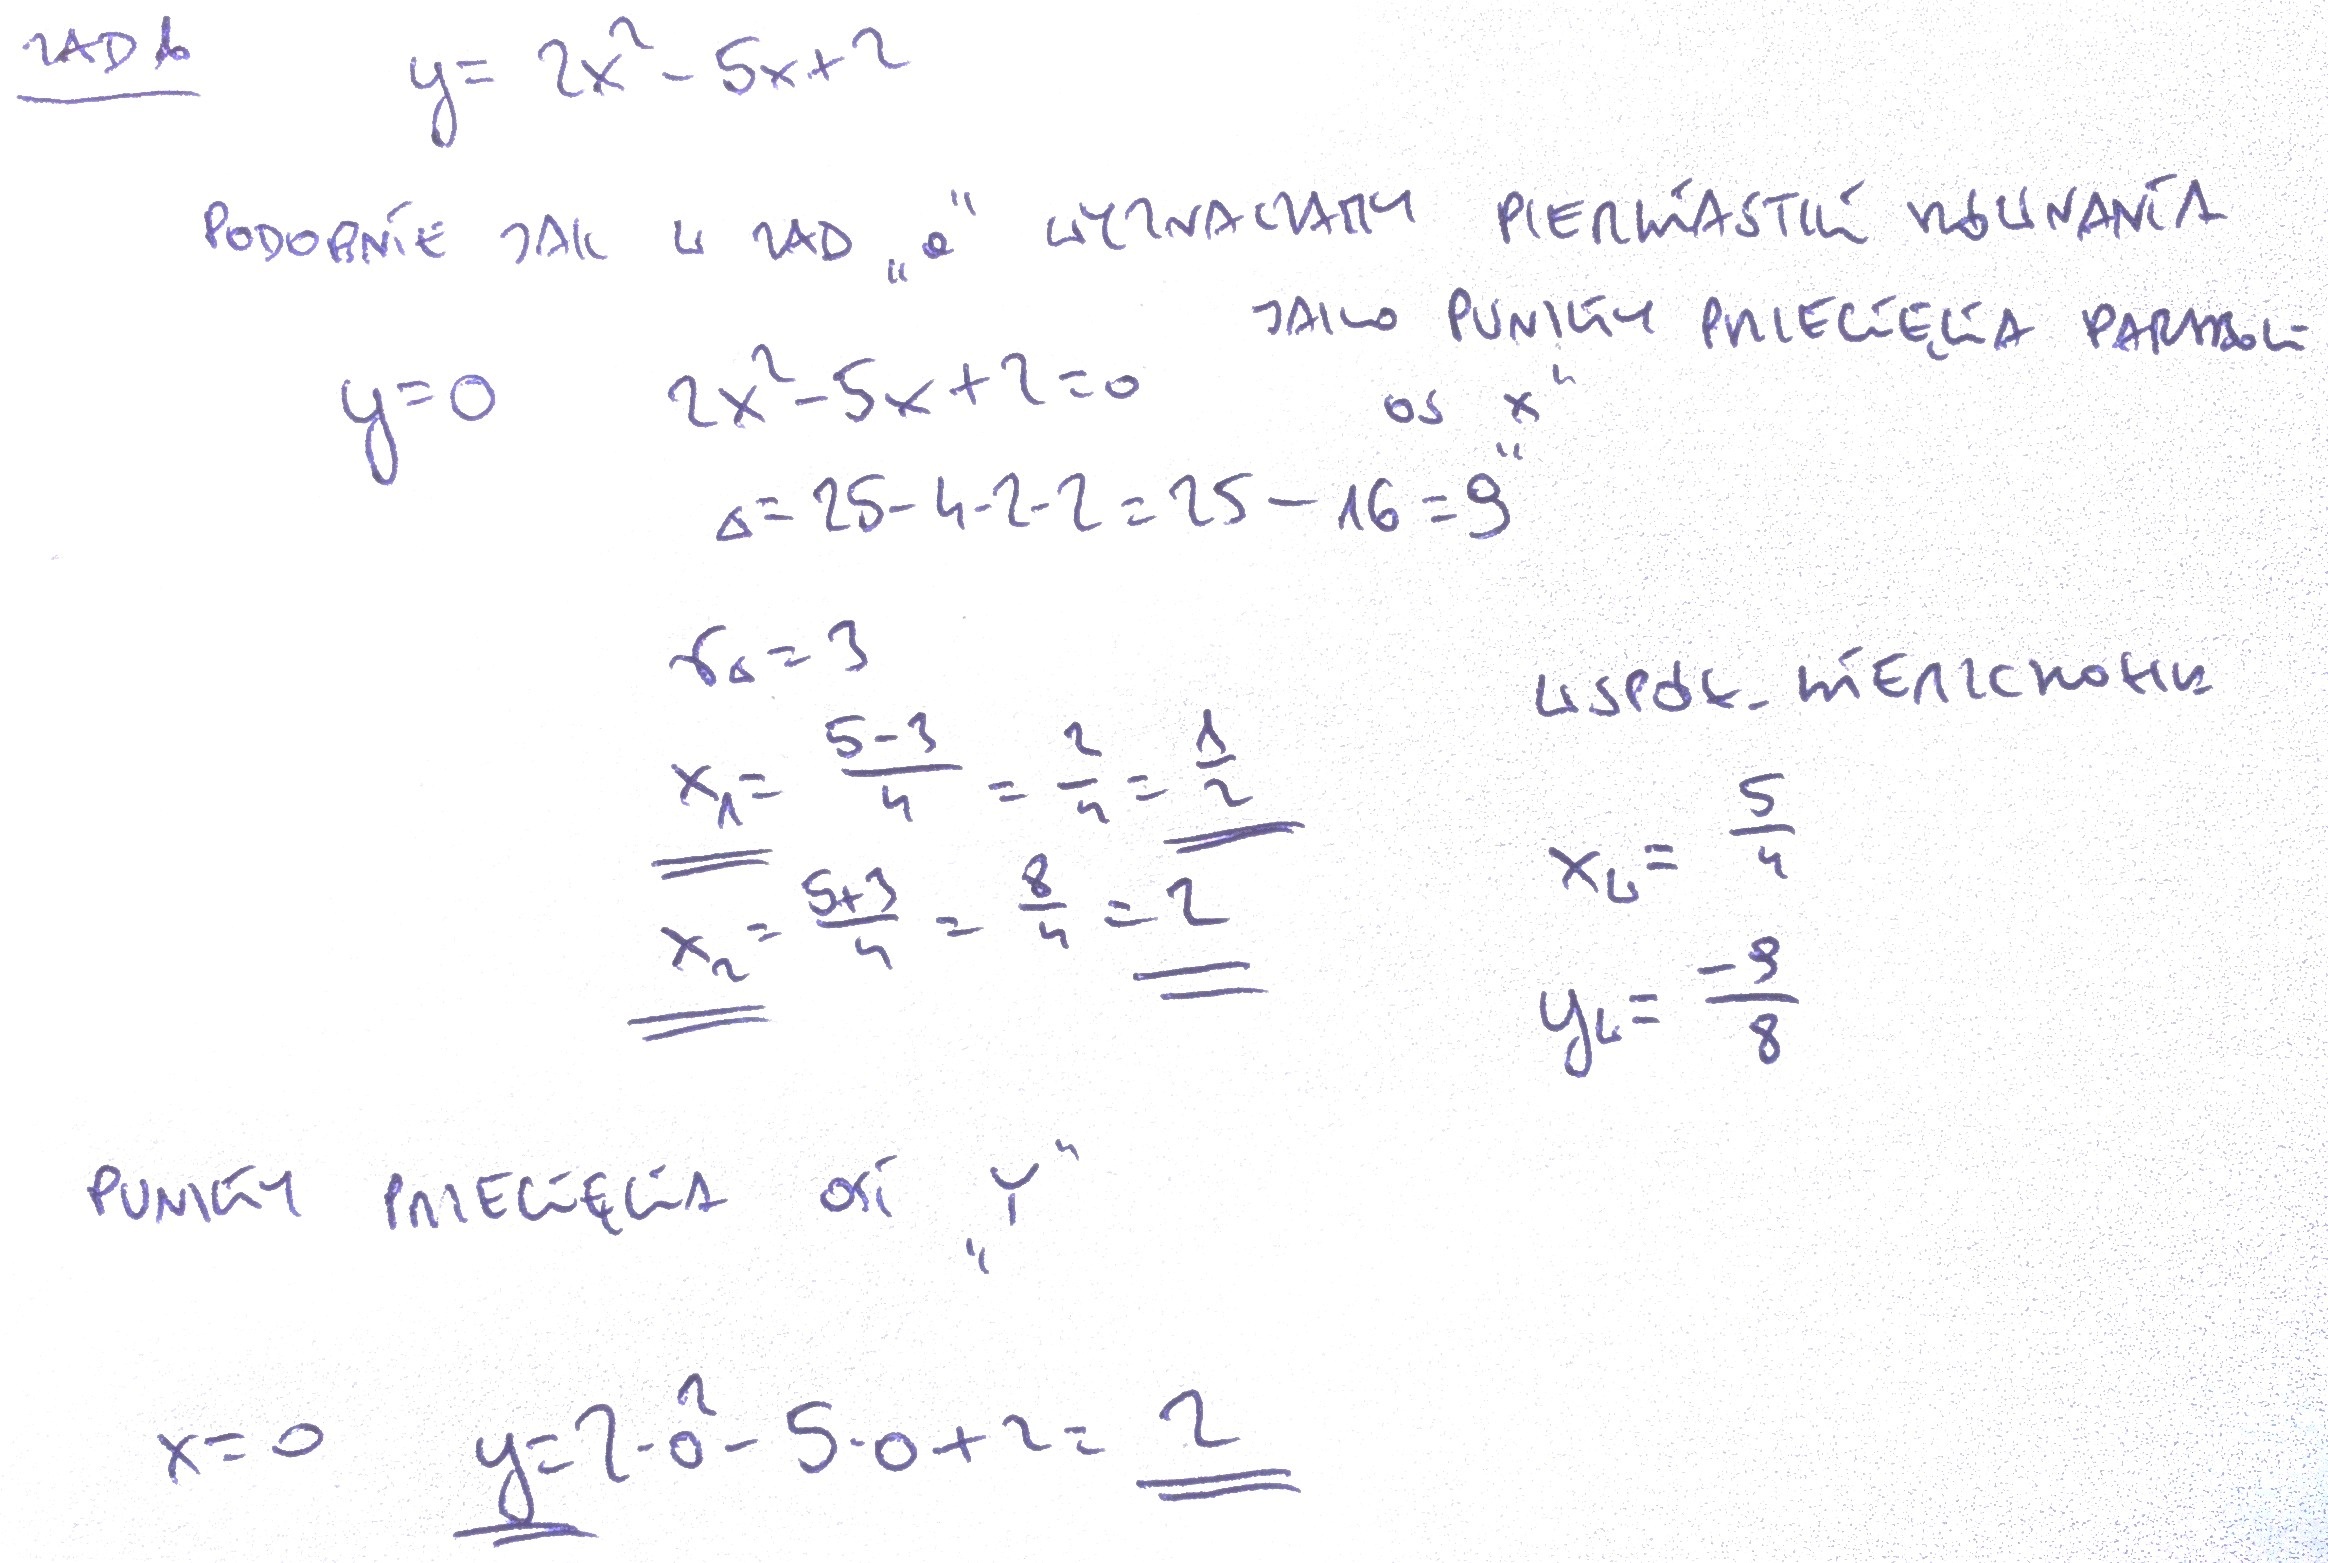 ZAD b
y = 2x² - 5x + 2
PODOBNIE JAK W ZAD „a" WYZNACZAMY PIERWIASTKI RÓWNANIA
JAKO PUNKTY PRZECIĘCIA PARABOLI
y = 0 2x² - 5x + 2 = 0 OŚ „x"
Δ = 25 - 4·2·2 = 25 - 16 = 9
√Δ = 3
WSPÓŁ. WIERZCHOŁKA
x₁ = \frac{5-3}{4} = \frac{2}{4} = \frac{1}{2}
x_w = \frac{5}{4}
x₂ = \frac{5+3}{4} = \frac{8}{4} = 2
y_w = \frac{-9}{8}
PUNKTY PRZECIĘCIA OSI „Y"
x = 0 y = 2·0² - 5·0 + 2 = 2